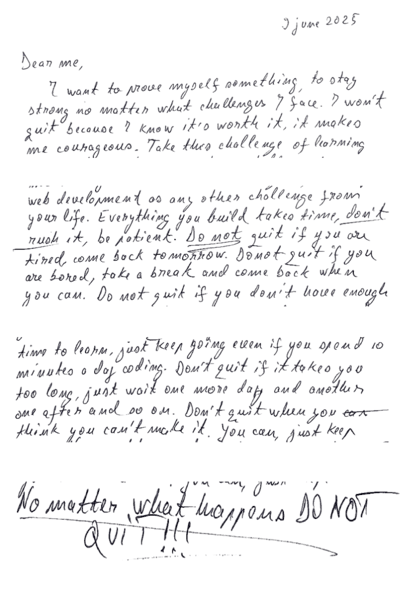 9 june 2025
Dear me,
I want to prove myself something, to stay
strong no matter what challenges I face. I won't
quit because I know it's worth it, it makes
me courageous. Take this challenge of learning
web development as any other challenge from
your life. Everything you build takes time, don't
rush it, be patient. Do not quit if you are
tired, come back tomorrow. Do not quit if you
are bored, take a break and come back when
you can. Do not quit if you don't have enough
time to learn, just keep going even if you spend 10
minutes a day coding. Don't quit if it takes you
too long, just wait one more day and another
one after and so on. Don't quit when you
think you can't make it. You can, just keep
No matter what happens DO NOT
QUIT!!!